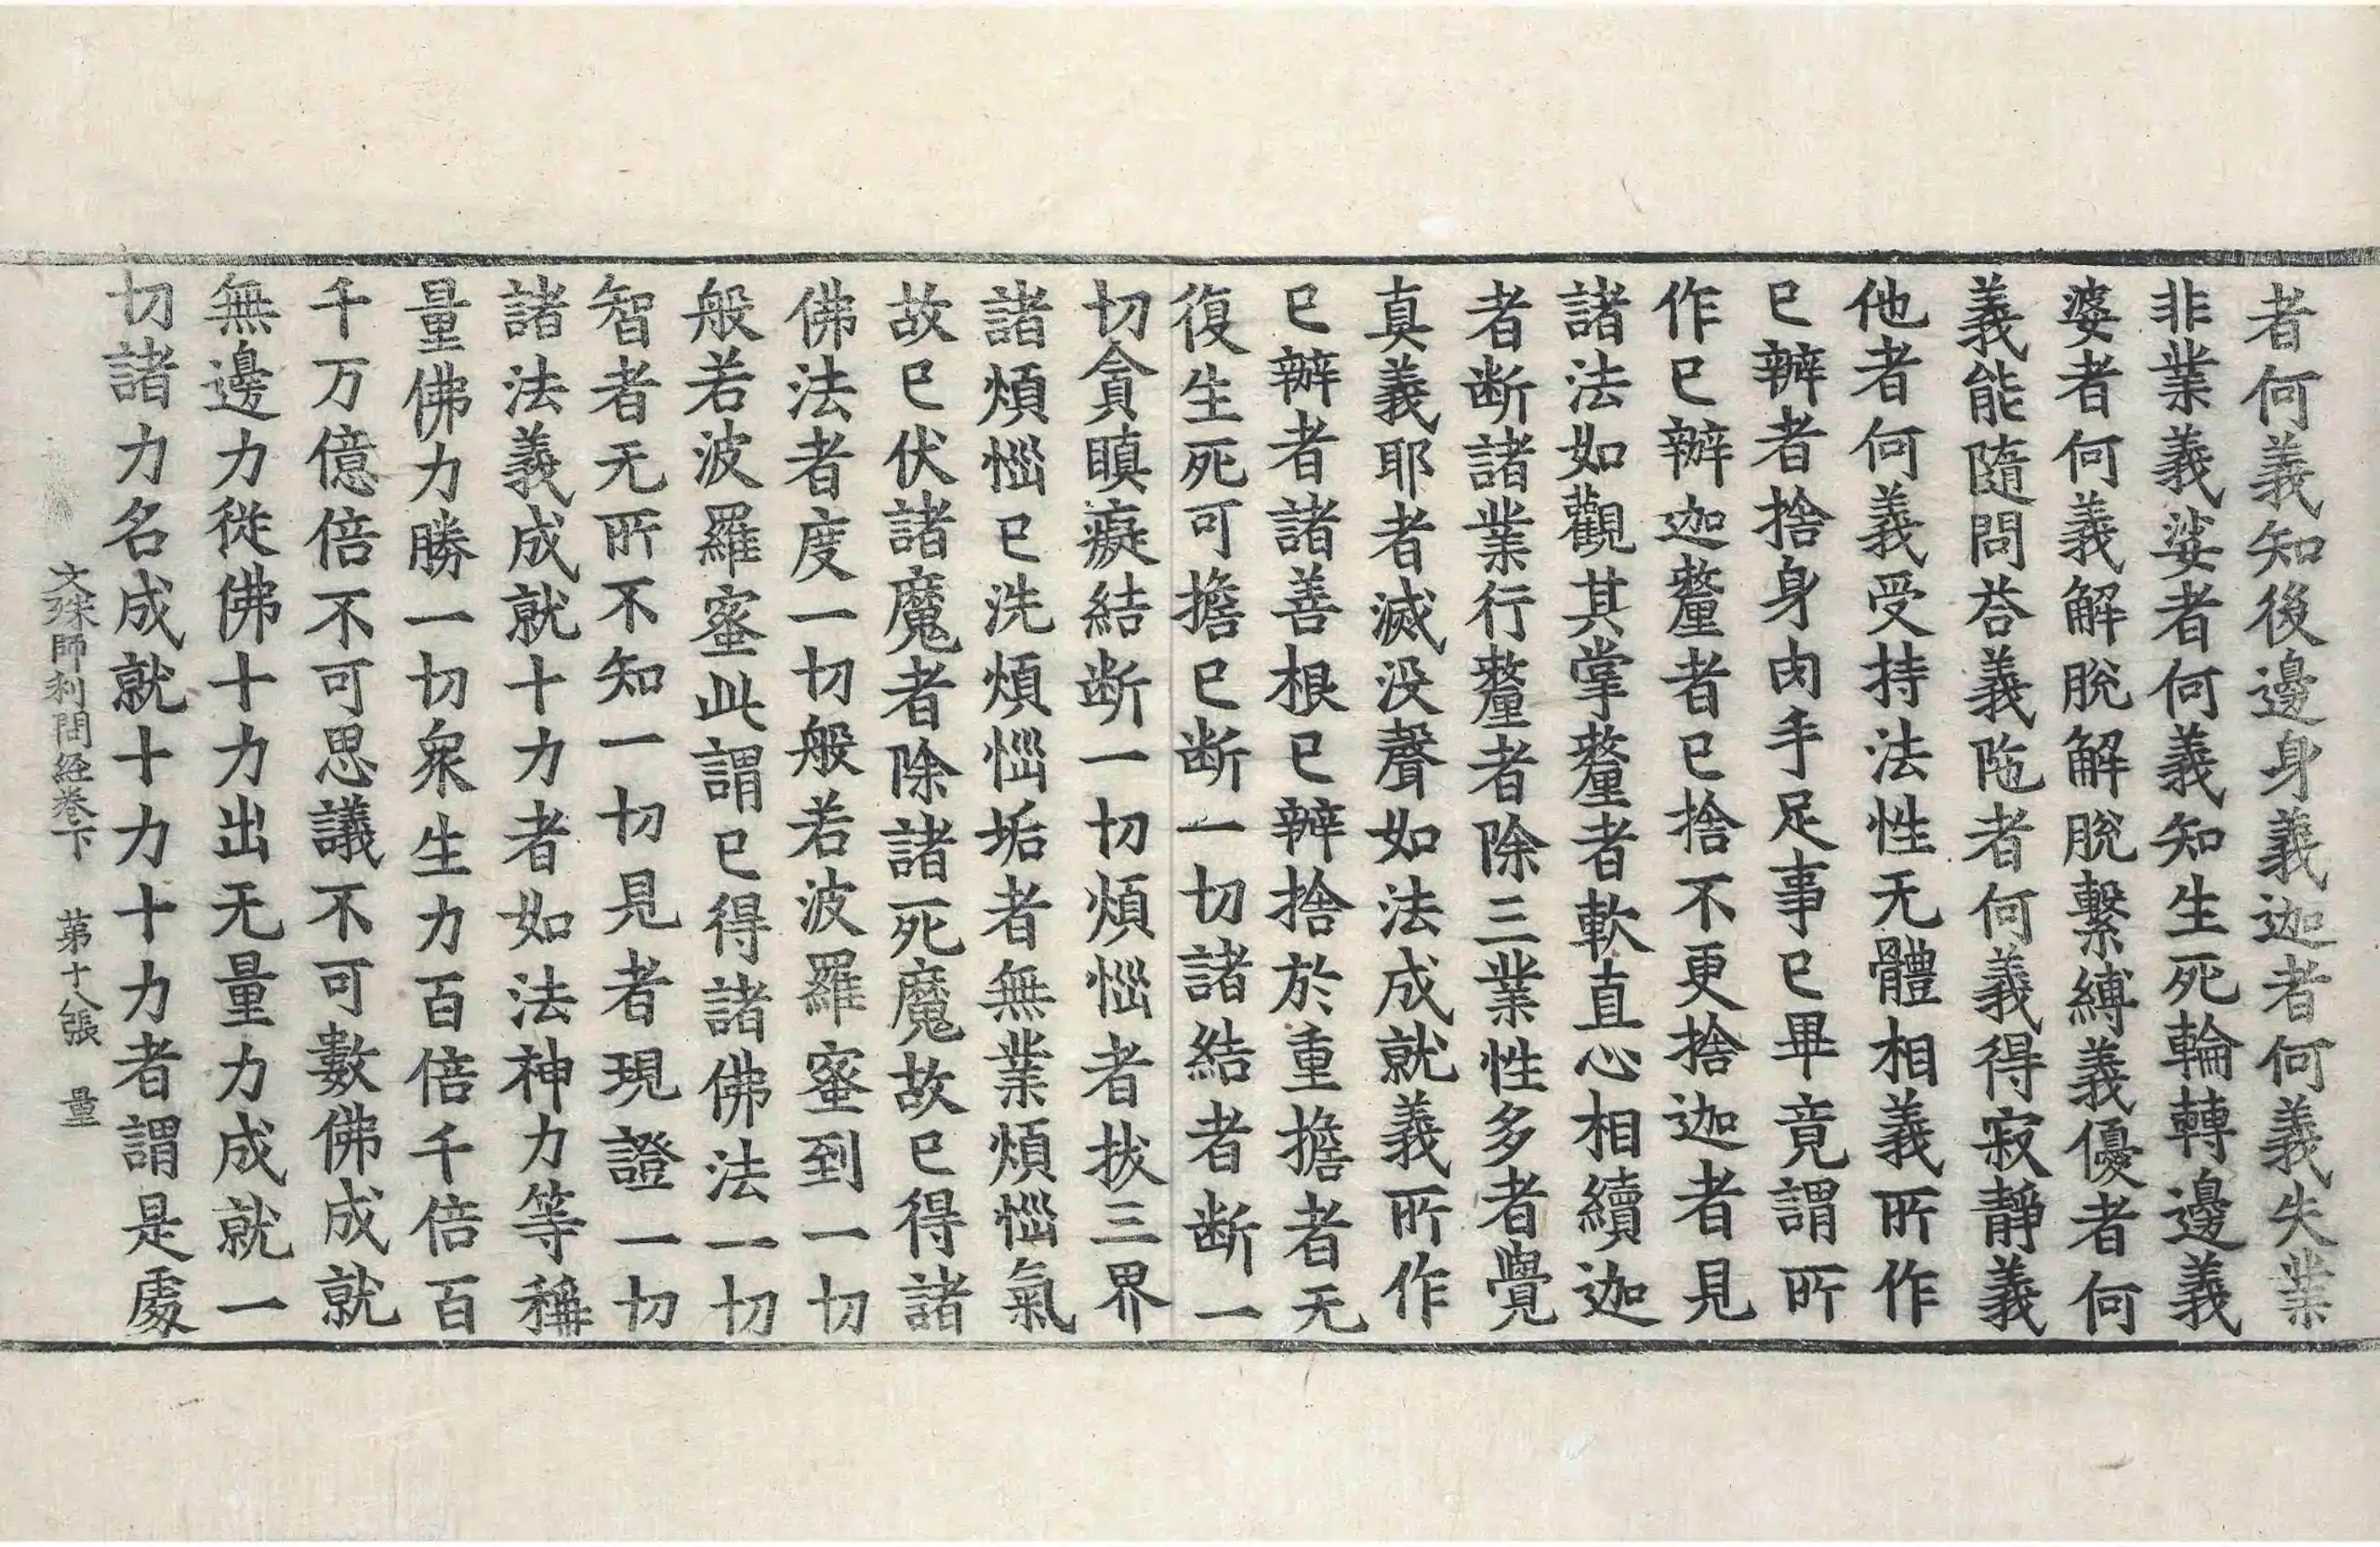 者何義知後邊身義迦者何義失業
非業義娑者何義知生死輪轉邊義
婆者何義解脫解脫繫縛義優者何
義能隨問荅義陁者何義得寂靜義
他者何義受持法性无體相義所作
已辦者捨身肉手足事已畢竟謂所
作已辦迦𨤲者已捨不更捨迦者見
諸法如觀其掌𨤲者軟直心相續迦
者断諸業行𨤲者除三業性多者覺
真義耶者滅没聲如法成就義所作
已辦者諸善根已辦捨於重擔者无
復生死可擔已断一切諸結者断一
切貪瞋癡結断一切煩惱者拔三界
諸煩惱已洗煩惱垢者無業煩惱氣
故已伏諸魔者除諸死魔故已得諸
佛法者度一切般若波羅蜜到一切
般若波羅蜜此謂已得諸佛法一切
智者无所不知一切見者現證一切
諸法義成就十力者如法神力等稱
量佛力勝一切衆生力百倍千倍百
千万億倍不可思議不可數佛成就
無邊力從佛十力出无量力成就一
切諸力名成就十力十力者謂是處
文殊師利問経卷下 苐十八張 量